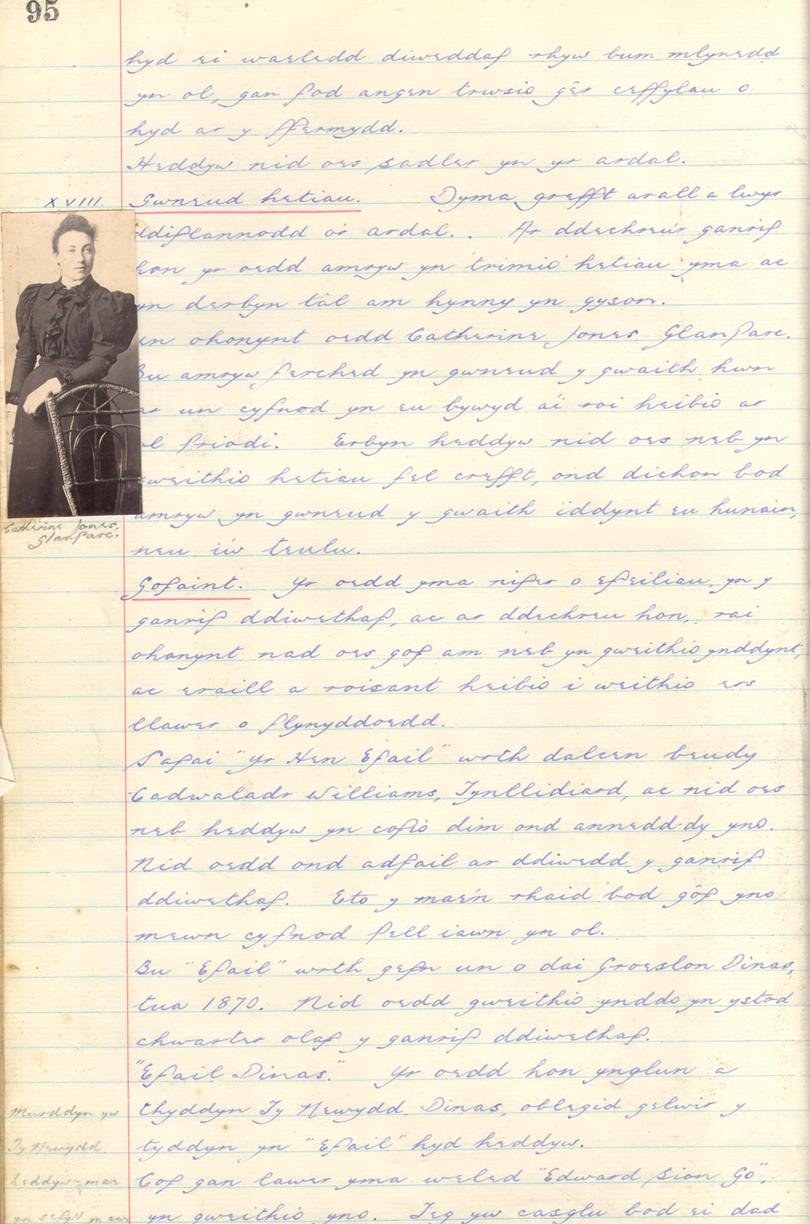 95
hyd ei waeledd diweddaf rhyw bum mlynedd
yn ol, gan fod angen trwsio gêr ceffylau o
hyd ar y ffermydd.
Heddyw nid oes sadler yn yr ardal.
XVIII. Gwneud hetiau. Dyma grefft arall a lwyr
ddiflannodd o'r ardal. . Ar ddechreu'r ganrif
hon yr oedd amryw yn 'trimio' hetiau yma ac
yn derbyn tâl am hynny yn gyson.
un ohonynt oedd Catherine Jones, Glan Parc.
Bu amryw ferched yn gwneud y gwaith hwn
ar un cyfnod yn eu bywyd a'i roi heibio ar
ol Priodi. Erbyn heddyw nid oes neb yn
gweithio hetiau fel crefft, ond dichon bod
amryw yn gwneud y gwaith iddynt eu hunain,
neu i'w teulu.
Catherine Jones,
Glan Parc.
Gofaint. Yr oedd yma nifer o efeiliau, yn y
ganrif ddiwethaf, ac ar ddechreu hon, rai
ohonynt nad oes gof am neb yn gweithio ynddynt,
ac eraill a roisant heibio i weithio ers
llawer o flynyddoedd.
Safai "Yr Hen Efail" wrth dalcen beudy
Cadwaladr Williams, Tynllidiard, ac nid oes
neb heddyw yn cofio dim ond annedd-dy yno.
Nid oedd ond adfail ar ddiwedd y ganrif
ddiwethaf. Eto y mae'n rhaid bod gôf yno
mewn cyfnod pell iawn yn ol.
Bu "Efail" wrth gefn un o dai Groeslon Dinas,
tua 1870. Nid oedd gweithio ynddo yn ystod
chwarter olaf y ganrif ddiwethaf.
"Efail Dinas." Yr oedd hon ynglun a
thyddyn Ty Newydd, Dinas, oblegid gelwir y
tyddyn yn "Efail" hyd heddyw.
Cof gan lawer yma weled "Edward Sion Go",
yn gweithio yno. Teg yw casglu bod ei dad
Murddyn yw
Ty Newydd
heddyw - mae
yn sefyll